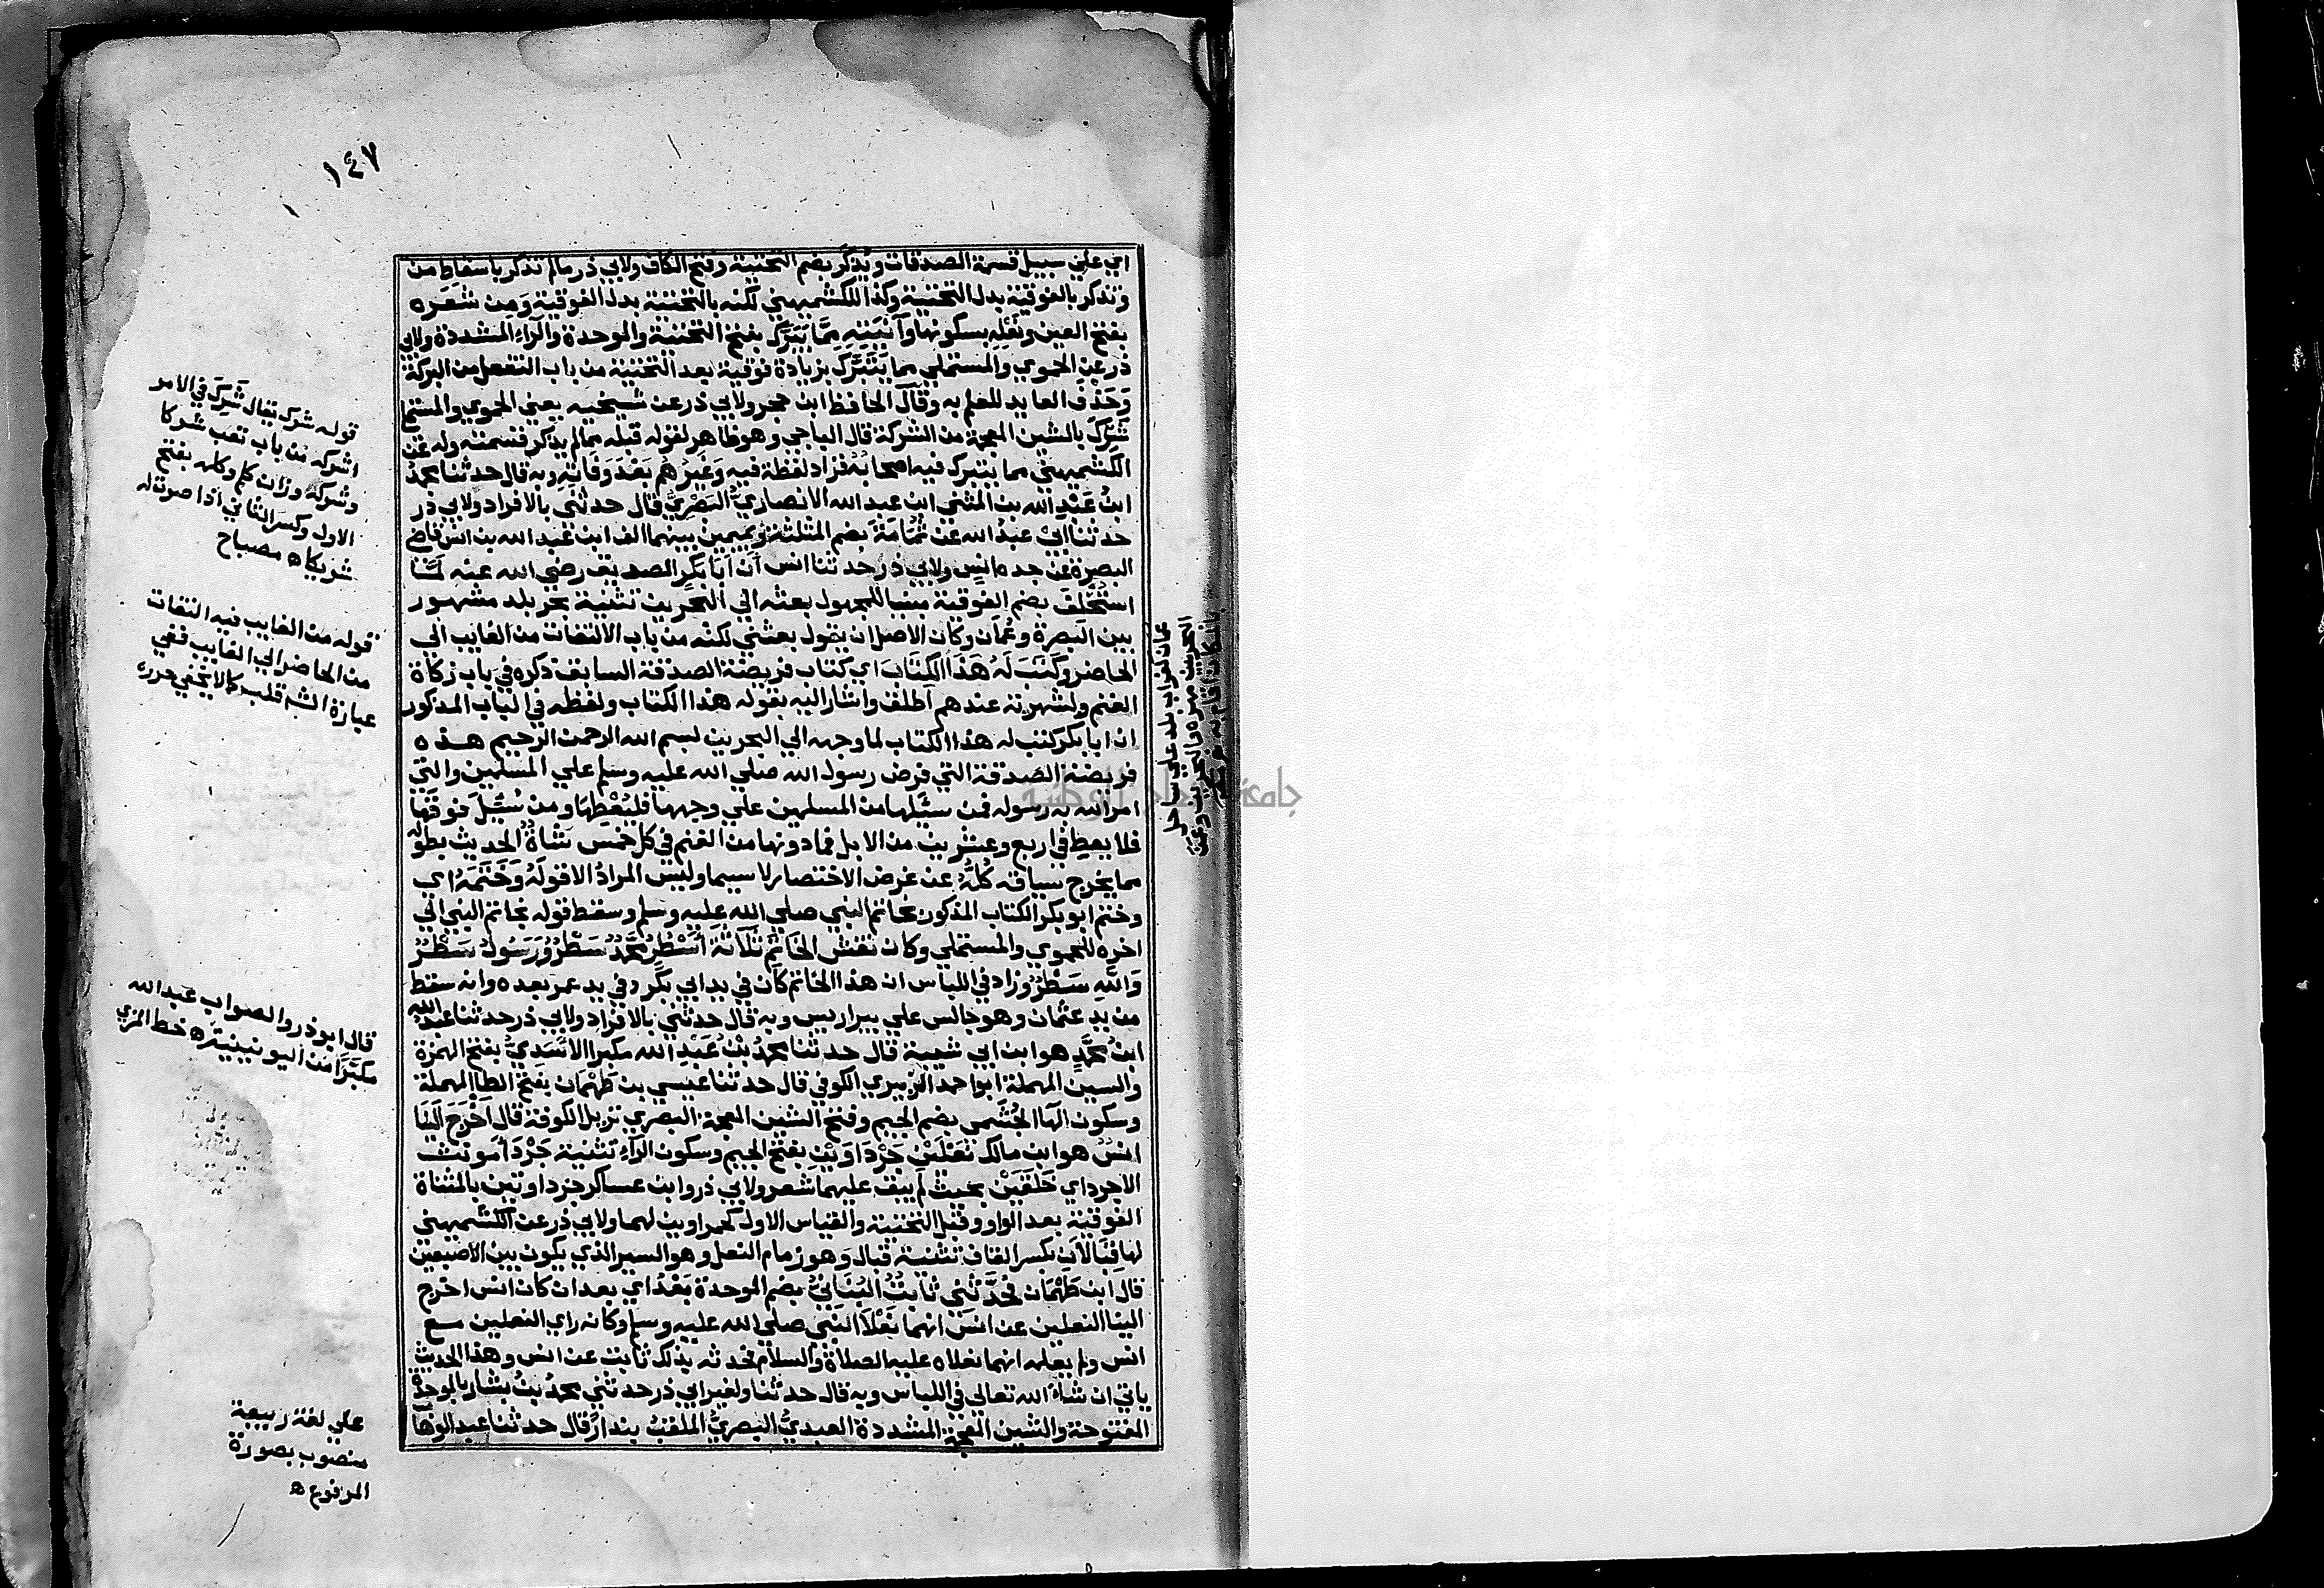 ١٤٧
اي علي سبيل قسمة الصدقات ويذكر بضم التحتية وفتح الكاف ولابي ذر مالم تذكر باسقاط من
وتذكر بالفوقية بدل التحتية وكذا للكشميهني لكنه بالتحتية بدل الفوقية وَمِن شَعَره
بفتح العين ونَعْلِه بسكونها وَآنيَتِهِ مِمَّا يَتَبَرَّك بفتح التحتية والموحدة والرّاء المشددة ولابي
ذر عن الحموي والمستملي مما يَتَبَرَّك بزيادة فوقية بعد التحتية من باب التفعل من البركة
وَحَذَفَ العايد للعلم به وقال الحافظ ابن حجر ولابي ذر عن شيخيه يعني الحموي والمستملي
شَرِكَ بالشين المعجمة من الشركة قال الباجي وهو ظاهر لقوله قبله مما لم يذكر قسمته وله عن
الكشميهني مما يتبرك فيه اصحابُهُ فزاد لفظة فيه وَغَيرُهم بَعْدَ وَفَاتِهِ وبه قال حدثنا محمدُ
ابنُ عَبْدِ الله بن المثني ابن عبد الله الانصاريُّ البَصْرِيُّ قال حدثني بالافراد ولابي ذر
حدثنا ابيْ عبدُ الله عن ثُمَامَةَ بضم المثلثة وبميمين بينهما الف ابن عبد الله بن انس قاضي
البصرة عن جده انَسٍ ولابي ذر حدثنا انس أن أبَا بَكرٍ الصديق رضي الله عنه لَمَّا
استُخْلِفَ بضم الفوقية مبنيا للمجهول بعثه الي البَحْرَين تثنية بحر بلد مشهور
بين البصرة وعُمَان وكان الاصل ان يقول بعثني لكنه من باب الالتفات من الغايب الي
الحاضر وكَتَبَ لَهُ هَذَا الكِتَابَ اي كتاب فريضة الصدقة السابق ذكره في باب زكاة
الغنم ولشهرته عندهم اطلق واشار اليه بقوله هذا الكتاب ولفظه في الباب المذكور
ان ابا بكر كتب له هذا الكتاب لما وجهه الي البحرين بسم الله الرحمن الرحيم هذه
فريضة الصدقة التي فرض رسول الله صلي الله عليه وسلم علي المسلمين والتي
امر الله به رسوله فمن سئلها من المسلمين علي وجهها فليُعْطِهَا ومن سُئِلَ فوقَهَا
فلا يعطِ في اربع وعشرين من الابل فما دونها من الغنم في كل خمس شاةٌ الحديث بطوله
مما يخرج سياقه كُلُّهُ عن غرض الاختصار لا سيما وليس المرادُ الا قولَهُ وَخَتَمَهُ اي
وختم ابو بكر الكتاب المذكور بخاتم النبي صلي الله عليه وسلم وسقط قوله بخاتم النبي الي
اخره للحموي والمستملي وكان نقش الخاتم ثَلَاثَةَ أسْطُرٍ مُحَمَّدٌ سَطْرٌ وَرَسُولُ سَطْرٌ
وَاللهِ سَطْرٌ وزاد في اللباس ان هذا الخاتم كان في يد ابي بكر وفي يد عمر بعده وانه سقط
من يد عثمان وهو جالس علي بير اريس وبه قال حدثني بالافراد ولابي ذر حدثنا عبد الله
ابنُ محمَّدٍ هو ابن ابي شيبة قال حدثنا محمدُ بْنُ عَبْدِ الله مكبرا الاسَدِيُّ بفتح الهمزة
والسين المهملة ابو احمد الزبيري الكوفي قال حدثنا عيسي بن طَهْمَان بفتح الطا المهملة
وسكون الهَا الجُشَمي بضم الجيم وفتح الشين المعجمة البصري نزيل الكوفة قال أخْرَجَ الَينَا
انسٌ هو ابن مالك نَعْلَيْن جَرْدَاوَيْنِ بفتح الجيم وسكون الرّاء تثنية جَرْدَا مونث
الاجرد اي خَلَقَيْن بحيث لم يبق عليهما شعر ولابي ذر وابن عساكر جرداوتين بالمثناة
الفوقية بعد الواو وقبل التحتية والقياس الاول كحمراوين لهما ولابي ذر عن الكشميهني
لها قِبَالاَنِ بكسر القاف تثنية قبال وهو زمام النعل وهو السير الذي يكون بين الاصبعين
قال ابن طَهْمَان فحَدَّثني ثابتٌ البُنَانيُّ بضم الموحدة بَعْدُ اي بعد ان كان انس اخرج
الينا النعلين عن انَس انهما نَعْلاَ النبيِ صلي الله عليه وسلم وكانه راي النعلين مع
انس ولم يعلم انهما نعلاه عليه الصلاة والسلام فحدثه بذلك ثابت عن انس وهذا الحديث
ياتي ان شاء الله تعالي في اللباس وبه قال حدثنا ولغير ابي ذر حدثني محمدُ بنُ بشار بالموحدة
المفتوحة والشين المعجمة المشددة العبديُّ البَصريُّ الملقبُ بندارٌ قال حدثنا عبد الوهاب
قوله شرك يقال شَرِكَ في الامر
اشركه من باب تعب شركا
وشركة وزان كلم وكلمه بفتح
الاول وكسر الثاني اذا صرت له
شريكا ه مصباح
قوله من الغايب فيه التفات
من الحاضر الي الغايب ففي
عبارة الشم قلب كما لا يخفي حرره
قال ابو ذر والصواب عبد الله
مكبَّرًا من اليونينية ه خط المزي
علي لغة ربيعة
منصوب بصورة
المرفوع ه
عمان كغراب بلد علي ساحل